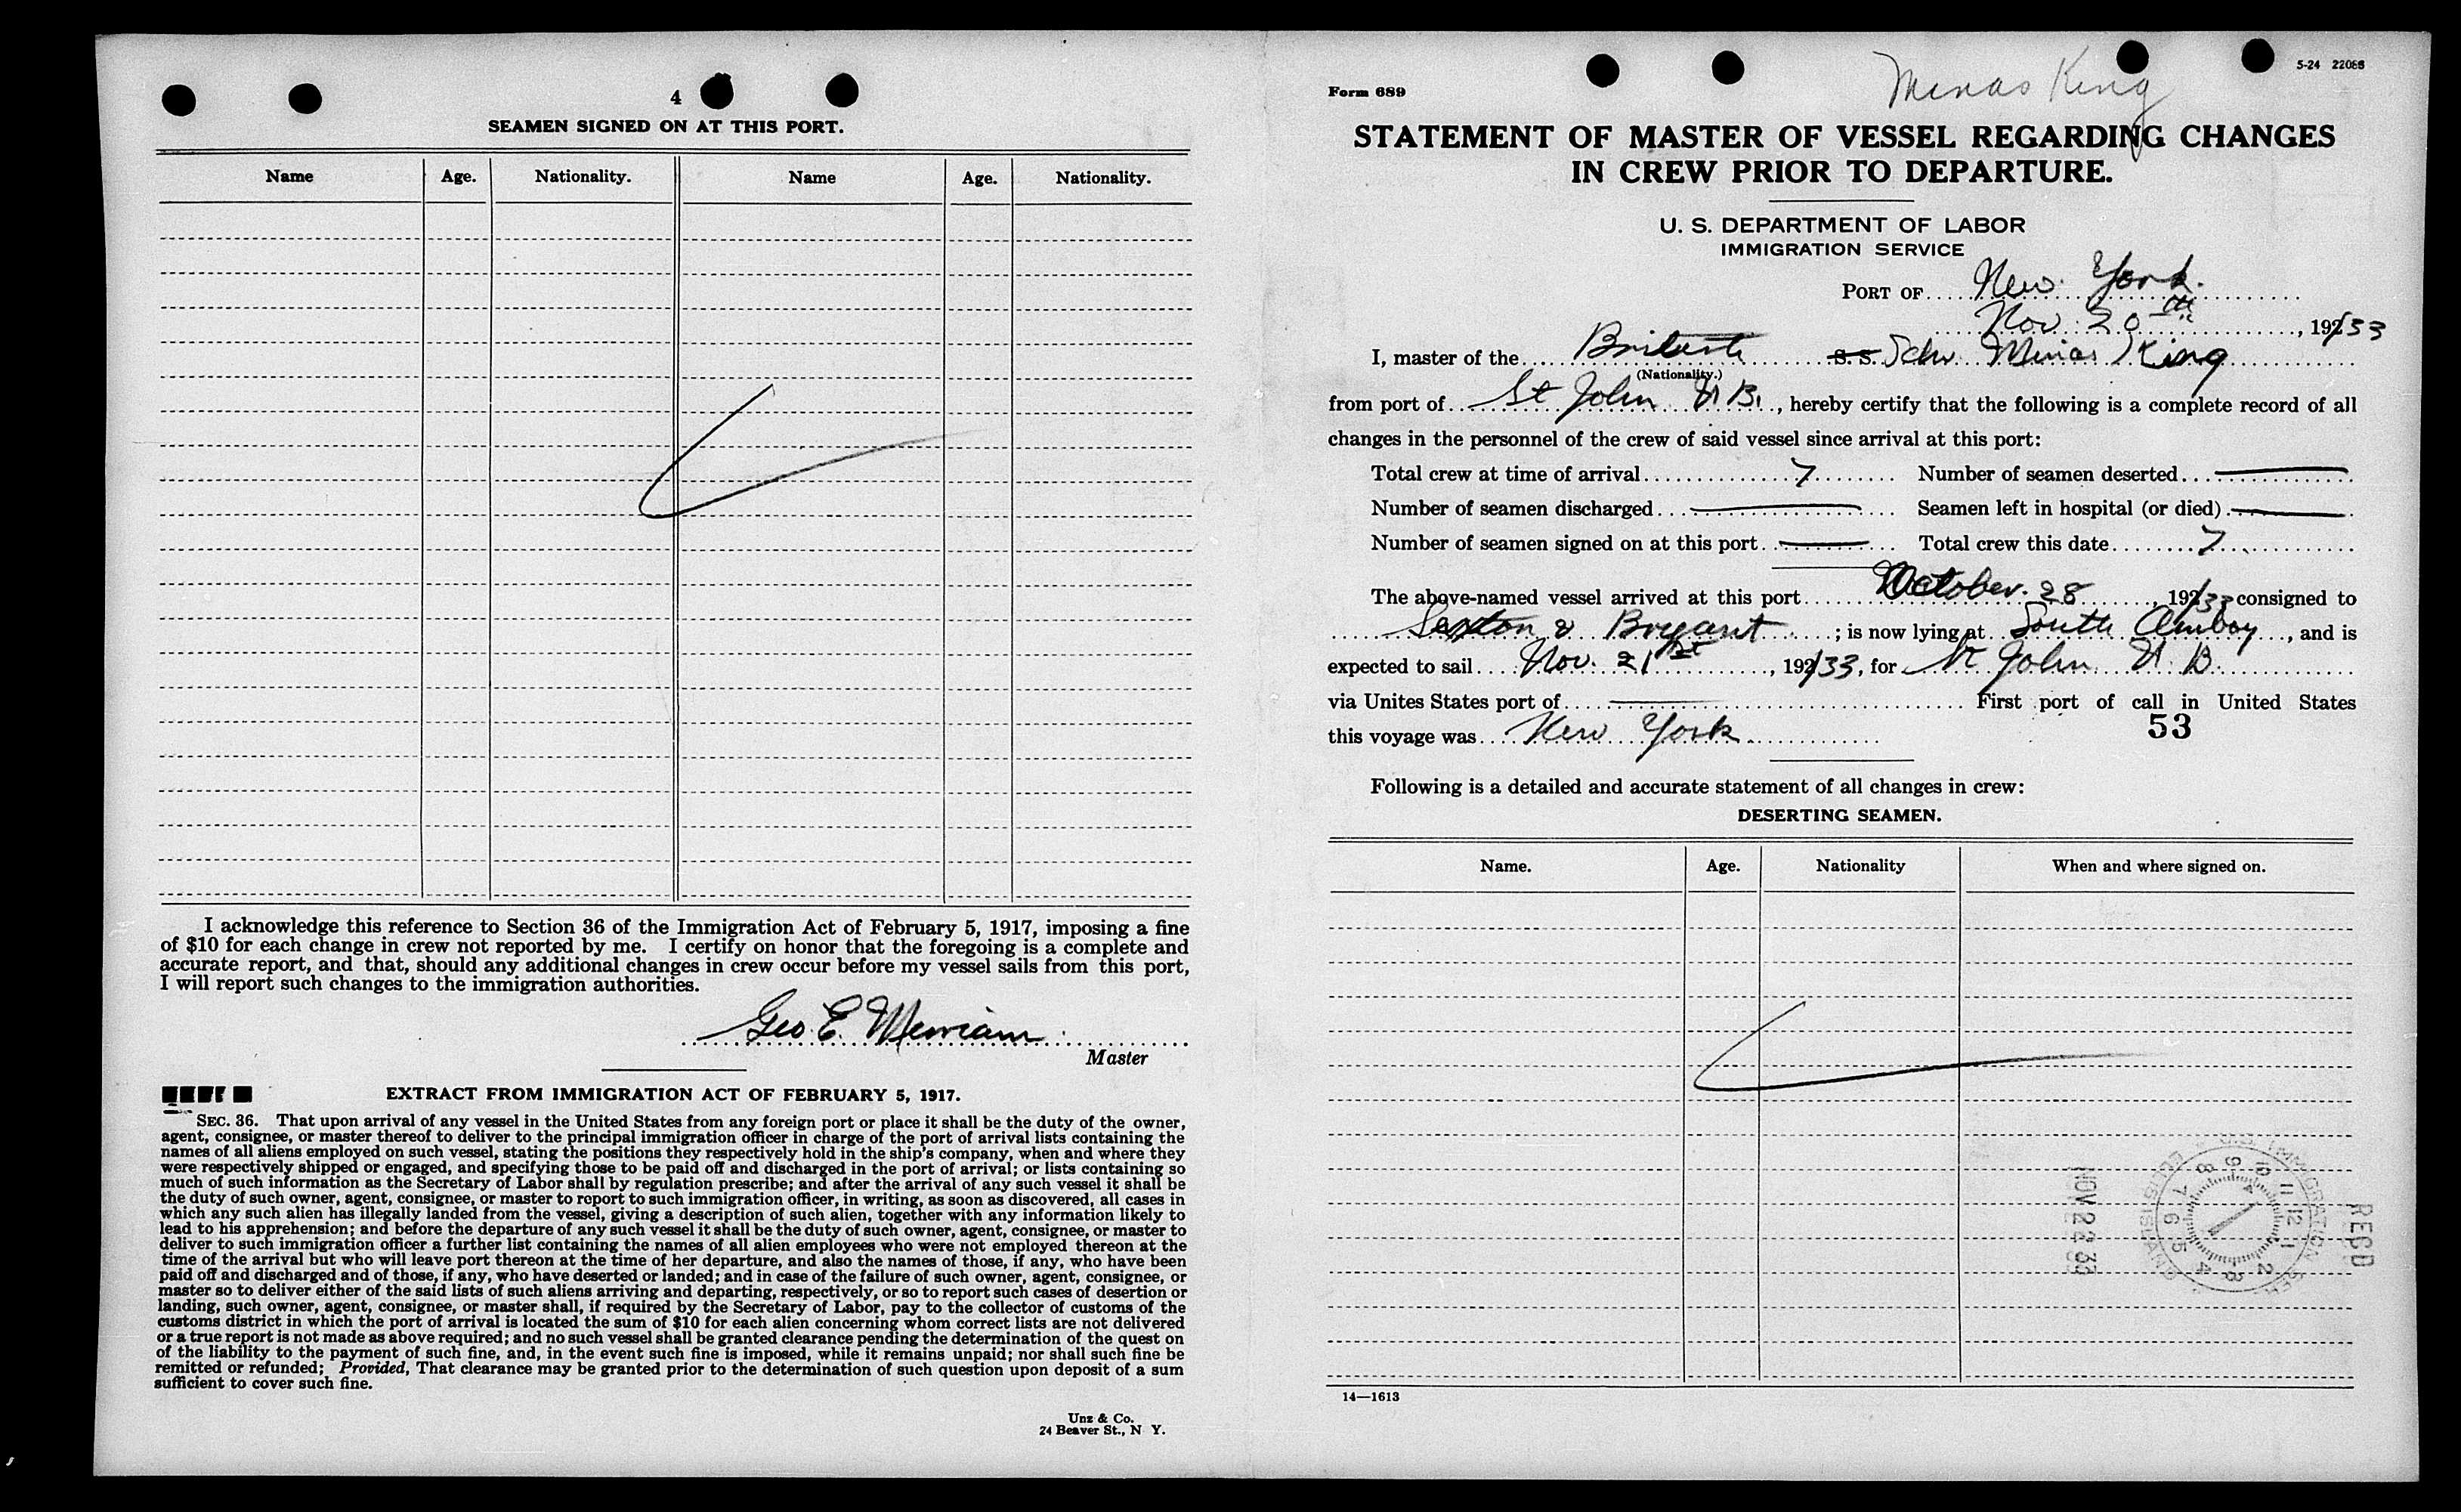 4
SEAMEN SIGNED ON AT THIS PORT.
Name Age. Nationality. Name Age. Nationality.
I acknowledge this reference to Section 36 of the Immigration Act of February 5, 1917, imposing a fine
of $10 for each change in crew not reported by me. I certify on honor that the foregoing is a complete and
accurate report, and that, should any additional changes in crew occur before my vessel sails from this port,
I will report such changes to the immigration authorities.
Geo. E. Merriam
Master
EXTRACT FROM IMMIGRATION ACT OF FEBRUARY 5, 1917.
SEC. 36. That upon arrival of any vessel in the United States from any foreign port or place it shall be the duty of the owner,
agent, consignee, or master thereof to deliver to the principal immigration officer in charge of the port of arrival lists containing the
names of all aliens employed on such vessel, stating the positions they respectively hold in the ship's company, when and where they
were respectively shipped or engaged, and specifying those to be paid off and discharged in the port of arrival; or lists containing so
much of such information as the Secretary of Labor shall by regulation prescribe; and after the arrival of any such vessel it shall be
the duty of such owner, agent, consignee, or master to report to such immigration officer, in writing, as soon as discovered, all cases in
which any such alien has illegally landed from the vessel, giving a description of such alien, together with any information likely to
lead to his apprehension; and before the departure of any such vessel it shall be the duty of such owner, agent, consignee, or master to
deliver to such immigration officer a further list containing the names of all alien employees who were not employed thereon at the
time of the arrival but who will leave port thereon at the time of her departure, and also the names of those, if any, who have been
paid off and discharged and of those, if any, who have deserted or landed; and in case of the failure of such owner, agent, consignee, or
master so to deliver either of the said lists of such aliens arriving and departing, respectively, or so to report such cases of desertion or
landing, such owner, agent, consignee, or master shall, if required by the Secretary of Labor, pay to the collector of customs of the
customs district in which the port of arrival is located the sum of $10 for each alien concerning whom correct lists are not delivered
or a true report is not made as above required; and no such vessel shall be granted clearance pending the determination of the quest on
of the liability to the payment of such fine, and, in the event such fine is imposed, while it remains unpaid; nor shall such fine be
remitted or refunded; Provided, That clearance may be granted prior to the determination of such question upon deposit of a sum
sufficient to cover such fine.
Unz & Co.
24 Beaver St., N Y.
Minas King
5-24 22086
Form 689
STATEMENT OF MASTER OF VESSEL REGARDING CHANGES
IN CREW PRIOR TO DEPARTURE.
U. S. DEPARTMENT OF LABOR
IMMIGRATION SERVICE
PORT OF New York.
Nov. 20th, 192/33
I, master of the British S. S. Schr Minas King
(Nationality.)
from port of St John N B., hereby certify that the following is a complete record of all
changes in the personnel of the crew of said vessel since arrival at this port:
Total crew at time of arrival 7 Number of seamen deserted
Number of seamen discharged Seamen left in hospital (or died)
Number of seamen signed on at this port Total crew this date 7
The above-named vessel arrived at this port October. 28, 192/33 consigned to
Sexton & Bryant; is now lying at South Amboy, and is
expected to sail Nov. 21st, 192/33, for St John N. B.
via Unites States port of First port of call in United States
this voyage was New York
53
Following is a detailed and accurate statement of all changes in crew:
DESERTING SEAMEN.
Name. Age. Nationality When and where signed on.
U.S. IMMIGRATION
ELLIS ISLAND
9 10 11 12 1 2 3 4 5 6 7 8
NOV 22 33
RECD
14—1613